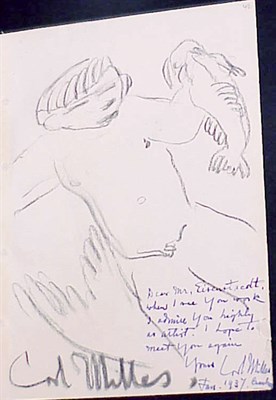 Dear Mr. Eisenstscott,
when I see You work
I admire You highly
as artist. I hope to
meet You again
Yours Carl Milles
Jan. 1937.
Carl Milles